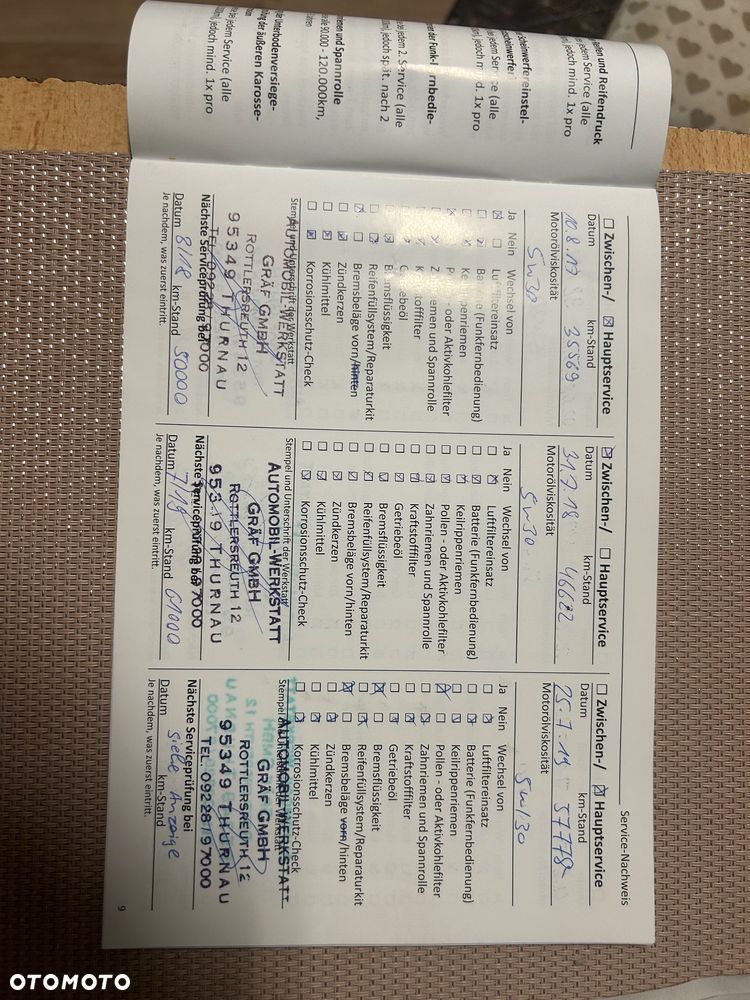 Service-Nachweis
☐ Zwischen-/ ☒ Hauptservice
Datum km-Stand
10.8.17 35569
Motorölviskosität
5w30
Ja Nein Wechsel von
Luftfiltereinsatz
Batterie (Funkfernbedienung)
Keilrippenriemen
Pollen - oder Aktivkohlefilter
Zahnriemen und Spannrolle
Kraftstofffilter
Getriebeöl
Bremsflüssigkeit
Reifenfüllsystem/Reparaturkit
Bremsbeläge vorn/hinten
Zündkerzen
Kühlmittel
Korrosionsschutz-Check
Stempel und Unterschrift der Werkstatt
AUTOMOBIL-WERKSTATT
GRÄF GMBH
ROTTLERSREUTH 12
95349 THURNAU
TEL. 09228/97000
Nächste Serviceprüfung bei
Datum 8/18 km-Stand 50000
Je nachdem, was zuerst eintritt.
☒ Zwischen-/ ☐ Hauptservice
Datum km-Stand
31.7.18 46682
Motorölviskosität
5w-30
Ja Nein Wechsel von
Luftfiltereinsatz
Batterie (Funkfernbedienung)
Keilrippenriemen
Pollen - oder Aktivkohlefilter
Zahnriemen und Spannrolle
Kraftstofffilter
Getriebeöl
Bremsflüssigkeit
Reifenfüllsystem/Reparaturkit
Bremsbeläge vorn/hinten
Zündkerzen
Kühlmittel
Korrosionsschutz-Check
Stempel und Unterschrift der Werkstatt
AUTOMOBIL-WERKSTATT
GRÄF GMBH
ROTTLERSREUTH 12
95349 THURNAU
Nächste Serviceprüfung bei
Datum 7/19 km-Stand 61000
Je nachdem, was zuerst eintritt.
☐ Zwischen-/ ☒ Hauptservice
Datum km-Stand
25.7.19 57778
Motorölviskosität
5w/30
Ja Nein Wechsel von
Luftfiltereinsatz
Batterie (Funkfernbedienung)
Keilrippenriemen
Pollen - oder Aktivkohlefilter
Zahnriemen und Spannrolle
Kraftstofffilter
Getriebeöl
Bremsflüssigkeit
Reifenfüllsystem/Reparaturkit
Bremsbeläge vorn/hinten
Zündkerzen
Kühlmittel
Korrosionsschutz-Check
AUTOMOBIL-WERKSTATT
GRÄF GMBH
ROTTLERSREUTH 12
95349 THURNAU
TEL. 09228/97000
Nächste Serviceprüfung bei
Datum km-Stand
siehe Anzeige
Je nachdem, was zuerst eintritt.
9
und Reifendruck
jedem Service (alle
jedoch mind. 1x pro
jedem Service (alle
jedoch mind. 1x pro
jedem 2. Service (alle
jedoch spät. nach 2
und Spannrolle
90.000 - 120.000km,
Unterbodenversiege-
der äußeren Karosse-
jedem Service (alle
jedoch mind. 1x pro
OTOMOTO